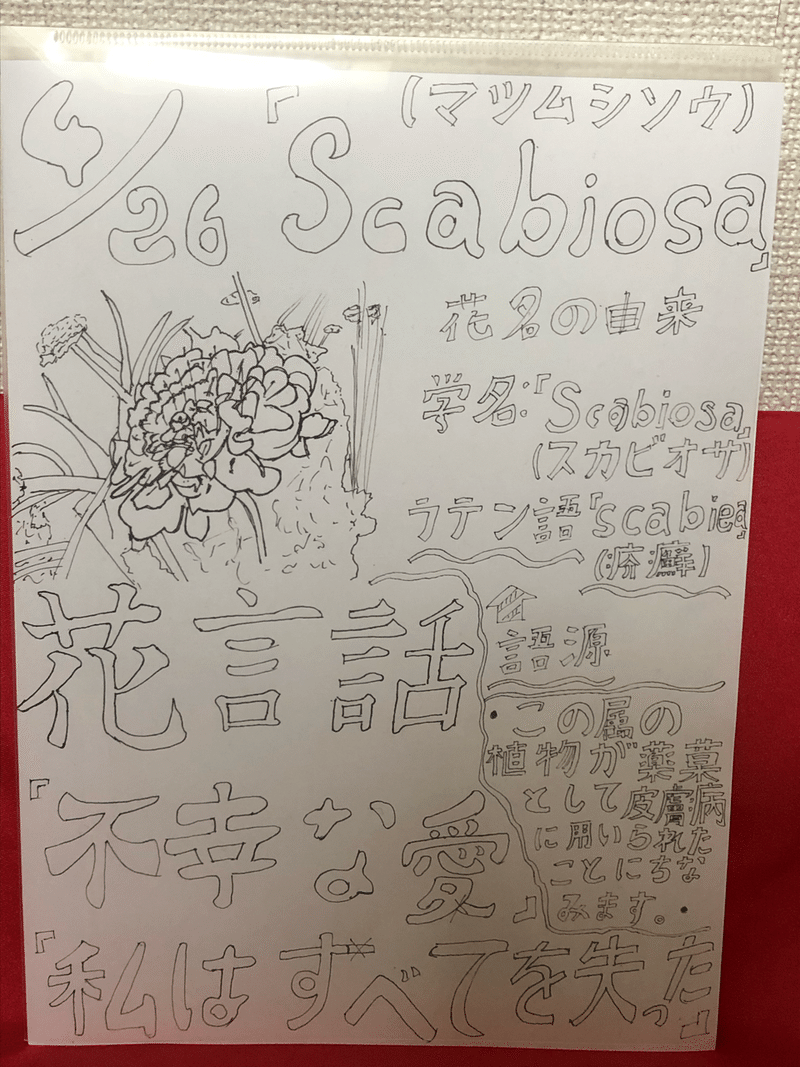 4/26「Scabiosa」
(マツムシソウ)
花名の由来
学名:「Scabiosa」
(スカビオサ)
ラテン語「scabiea」
(疥癬)
語源
・この属の
植物が薬菓
として皮膚病
に用いられた
ことにちな
みます。・
花言話
『不幸な愛』
『私はすべてを失った』